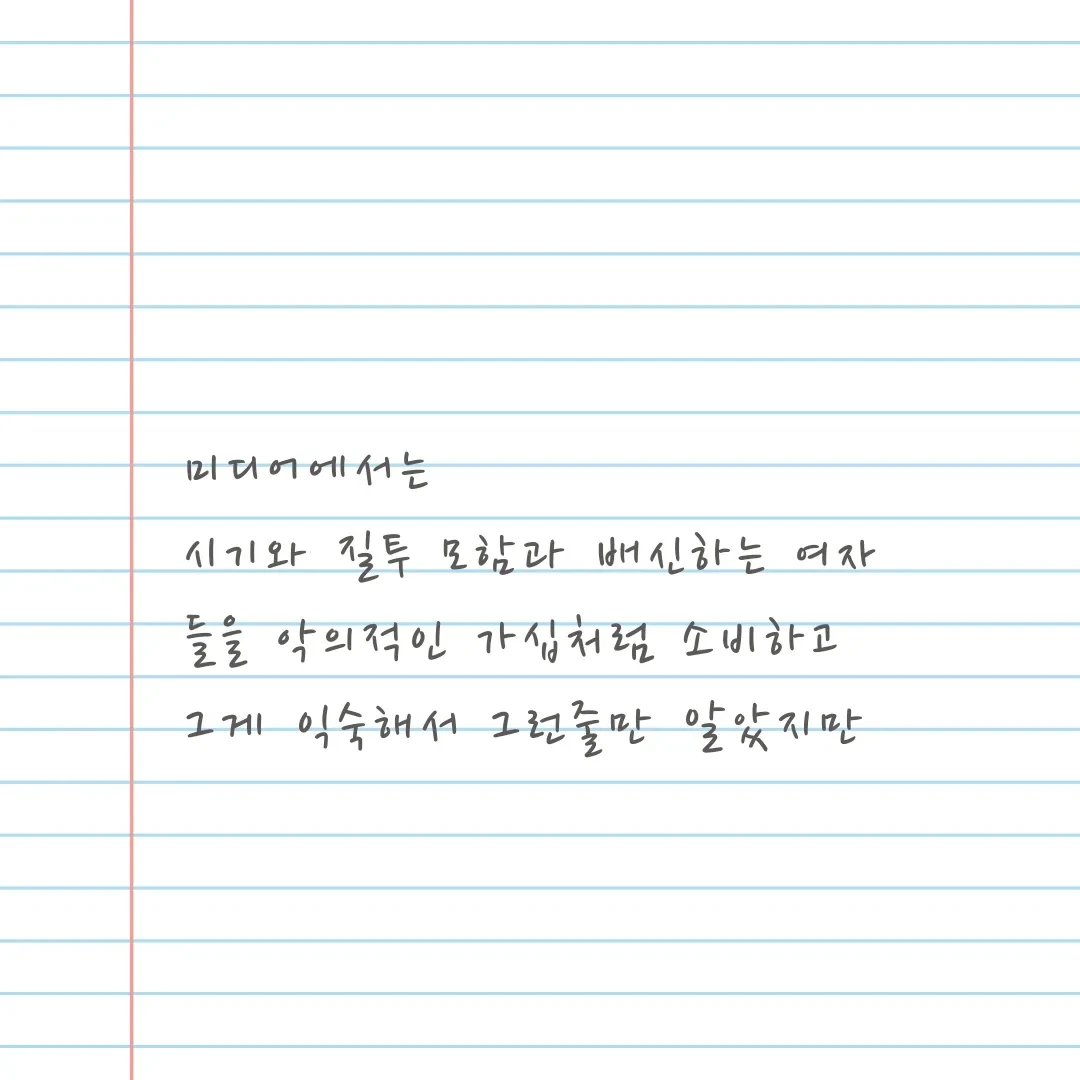 미디어에서는
시기와 질투 모함과 배신하는 여자
들을 악의적인 가십처럼 소비하고
그게 익숙해서 그런줄만 알았지만